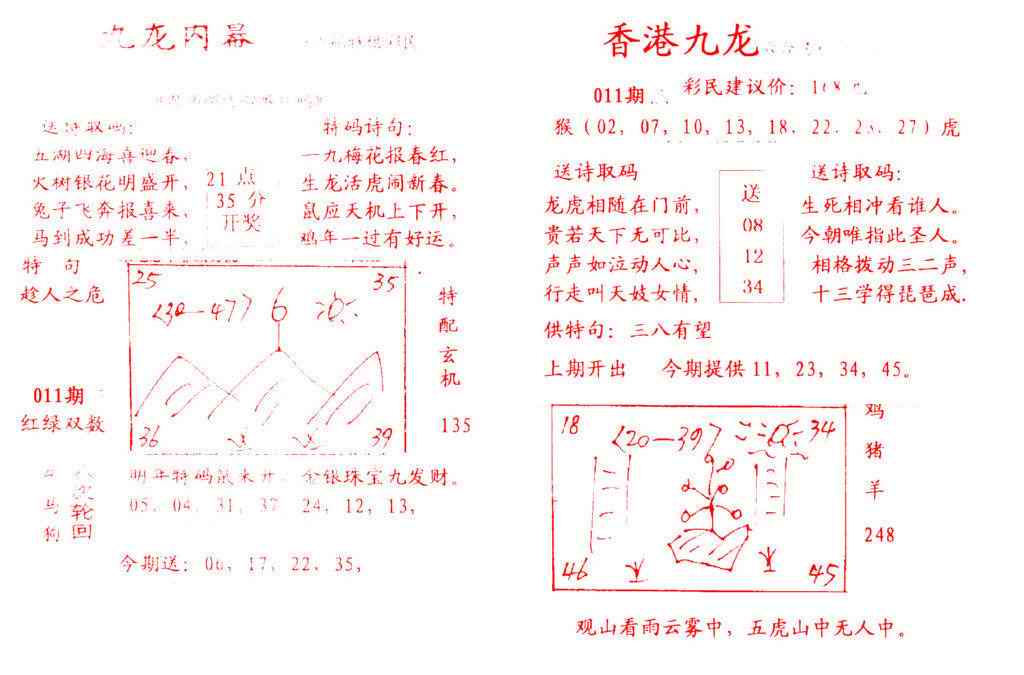 九龙内幕
送诗取码:
五湖四海喜迎春，
火树银花明盛开，
兔子飞奔报喜来，
马到成功差一半，
21 点
35 分
开奖
特码诗句：
一九梅花报春红，
生龙活虎闹新春。
鼠应天机上下开，
鸡年一过有好运。
特 句
趁人之危
011期
红绿双数
25
35
<30—47>
6
36
39
特
配
玄
机
135
马
狗
轮
回
明年特码鼠来开，金银珠宝九发财。
05，04，31，37 24，12，13，
今期送：06，17，22，35，
香港九龙
011期
彩民建议价：168
猴（02，07，10，13，18，22，28，27）虎
送诗取码
龙虎相随在门前，
贵若天下无可比，
声声如泣动人心，
行走叫天妓女情，
送
08
12
34
送诗取码：
生死相冲看谁人。
今朝唯指此圣人。
相格拨动三二声，
十三学得琵琶成.
供特句：三八有望
上期开出 今期提供 11，23，34，45。
18
<20—39>
34
46
45
鸡
猪
羊
248
观山看雨云雾中，五虎山中无人中。